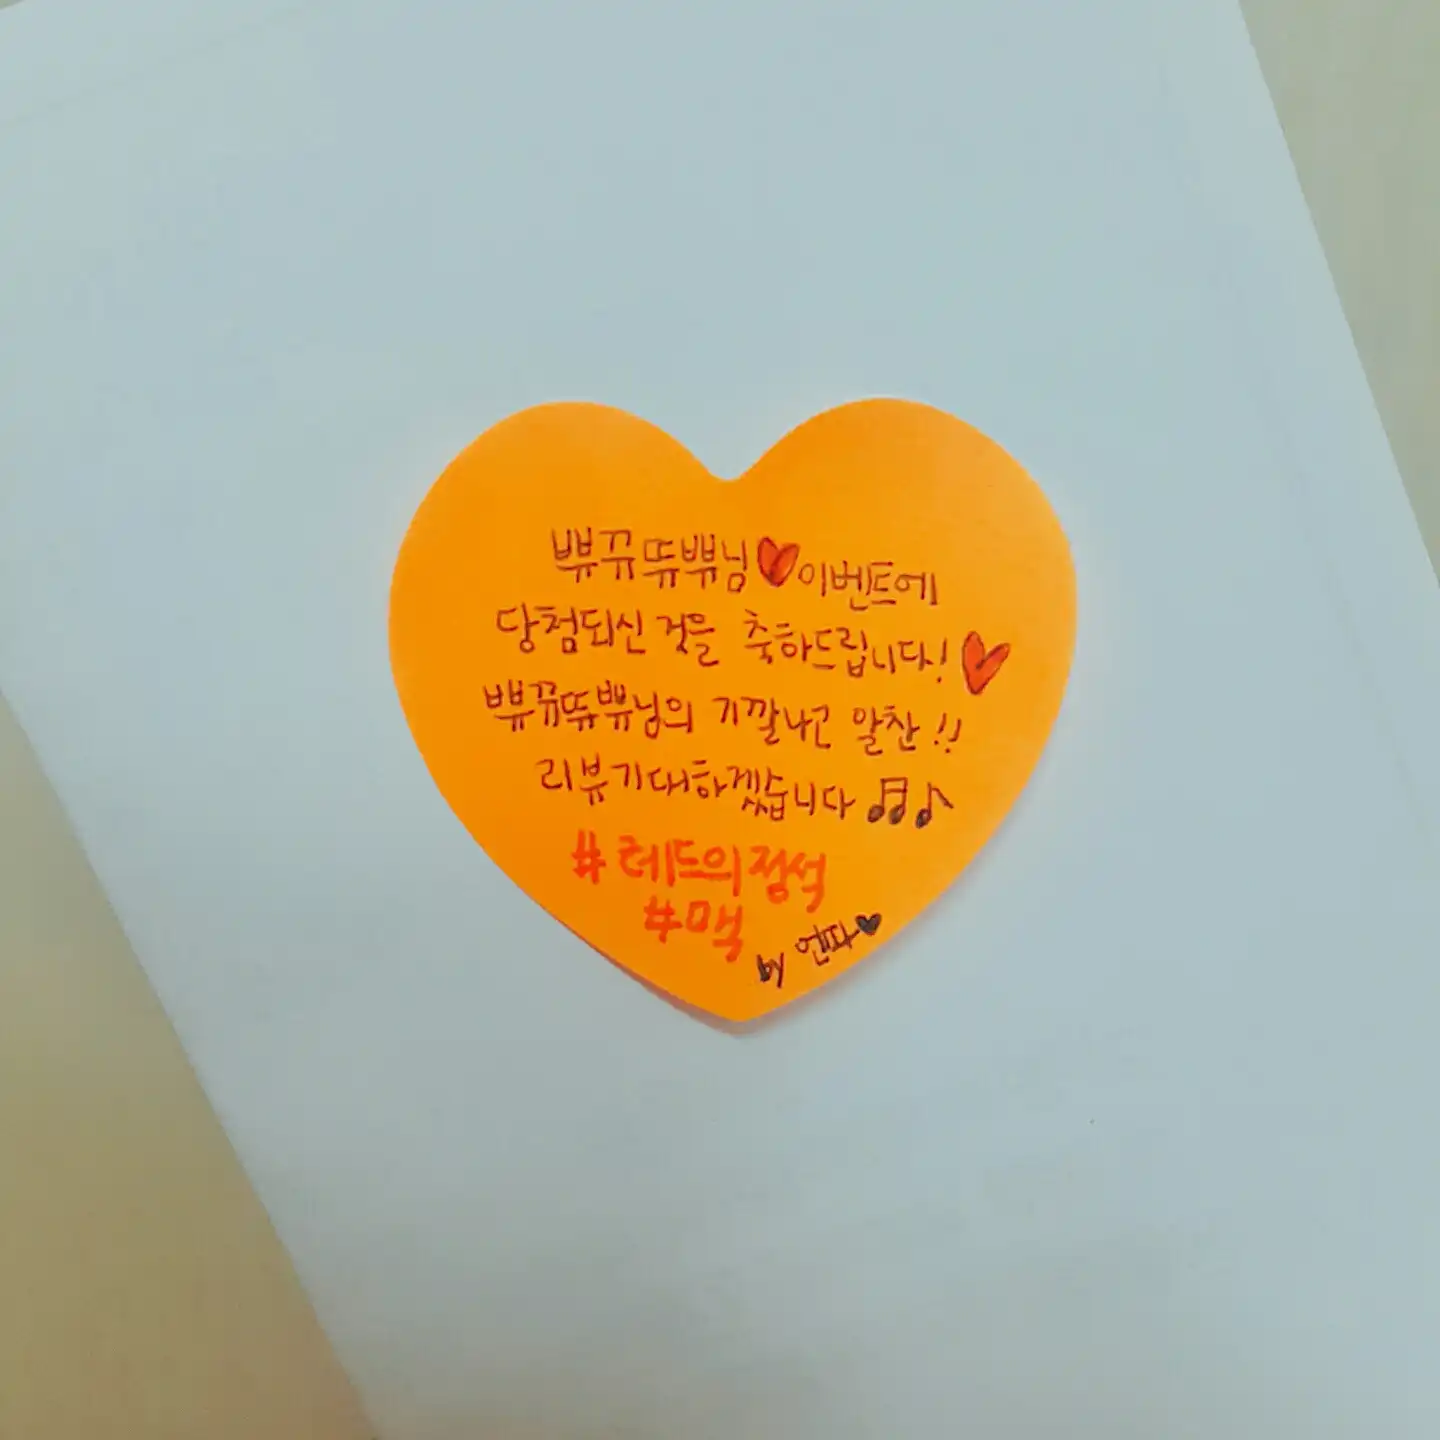 쀼뀨뜌쀼님♥이벤트에
당첨되신 것을 축하드립니다!♥
쀼뀨뜌쀼님의 기깔나고 알찬!!
리뷰기대하겠습니다 🎵♪
#레드의정석
#맥
by 언파♥